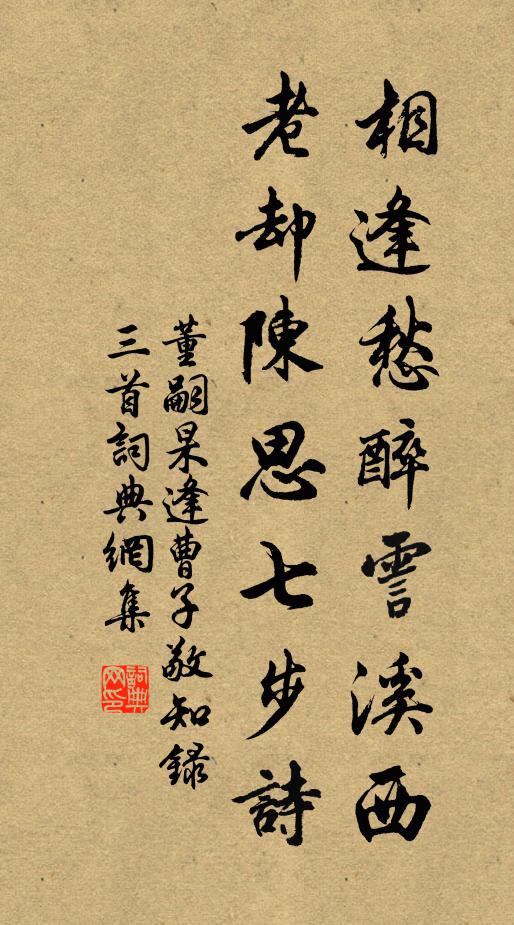 相逢愁醉霅溪西
老却陳思七步詩
董嗣杲逢曹子敬知錄
三首詞典網集
詞典
网印